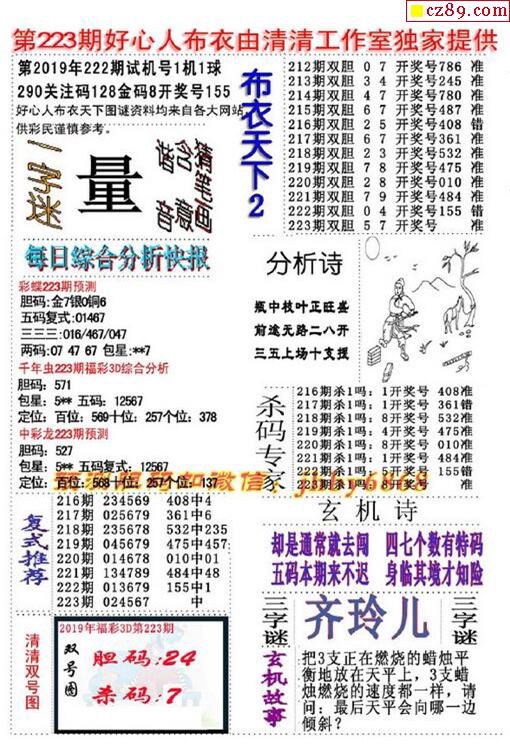 cz89.com
第223期好心人布衣由清清工作室独家提供
第2019年222期试机号1机1球
290关注码128金码8开奖号155
好心人布衣天下图谜资料均来自各大网站
供彩民谨慎参考。
一字迷
量
猜笔画
含意
谐音
布衣天下2
212期双胆 0 7 开奖号786 准
213期双胆 3 4 开奖号245 准
214期双胆 4 7 开奖号780 准
215期双胆 6 7 开奖号487 准
216期双胆 2 5 开奖号408 错
217期双胆 6 7 开奖号361 准
218期双胆 2 3 开奖号532 准
219期双胆 7 8 开奖号475 准
220期双胆 2 8 开奖号010 准
221期双胆 7 9 开奖号484 准
222期双胆 0 4 开奖号155 错
223期双胆 5 7 开奖号 准
每日综合分析快报
彩蝶223期预测
胆码:金7银0铜6
五码复式:01467
三三三:016/467/047
两码:07 47 67 包星:**7
千年虫223期福彩3D综合分析
胆码:571
包星:5** 五码:12567
定位:百位:569十位:257个位:378
中彩龙223期预测
胆码:527
包星:5** 五码复式:12567
定位:百位:568十位:257个位:137
分析诗
瓶中枝叶正旺盛
前途无路二八开
三五上场十支援
杀码专家
216期杀1吗:1开奖号 408准
217期杀1吗:1开奖号 361错
218期杀1吗:8开奖号 532准
219期杀1吗:3开奖号 475准
220期杀1吗:4开奖号 010准
221期杀1吗:1开奖号 484准
222期杀1吗:5开奖号 155错
223期杀1吗:3开奖号 准
复式推荐
216期 234569 408中4
217期 025679 361中6
218期 235678 532中235
219期 045679 475中457
220期 014678 010中01
221期 134789 484中48
222期 013679 155中1
223期 024567 中
玄机诗
却是通常就去闯 四七个数有特码
五码本期来不迟 身临其境才知险
清清双号图
2019年福彩3D第223期
双号图
胆码:24
杀码:7
三字谜
齐玲儿
三字谜
玄机故事
把3支正在燃烧的蜡烛平
衡地放在天平上，3支蜡
烛燃烧的速度都一样，请
问：最后天平会向哪一边
倾斜？